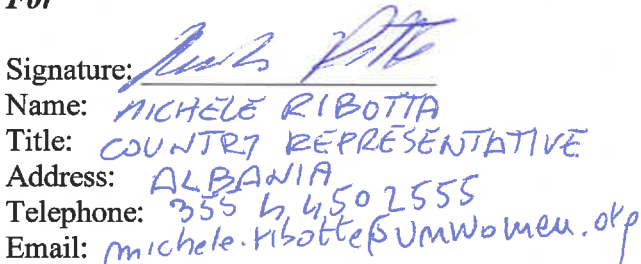 For
Signature:
Name: MICHELE RIBOTTA
Title: COUNTRY REPRESENTATIVE
Address: ALBANIA
Telephone: 355 4 4502555
Email: michele.ribotta@unwomen.org